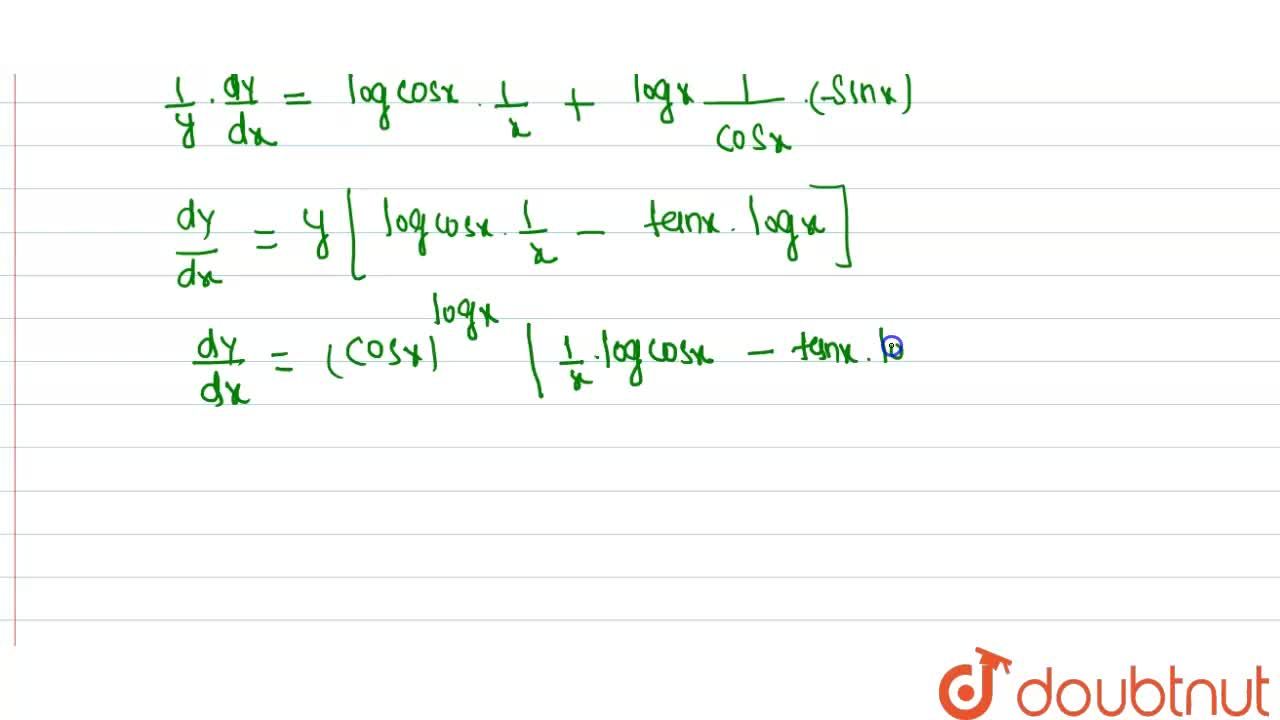 1/y · dy/dx = log cosx · 1/x + logx 1/cosx · (-Sinx)
dy/dx = y [ log cosx · 1/x - tanx · logx ]
dy/dx = (cosx)^logx [ 1/x · log cosx - tanx · lo
doubtnut